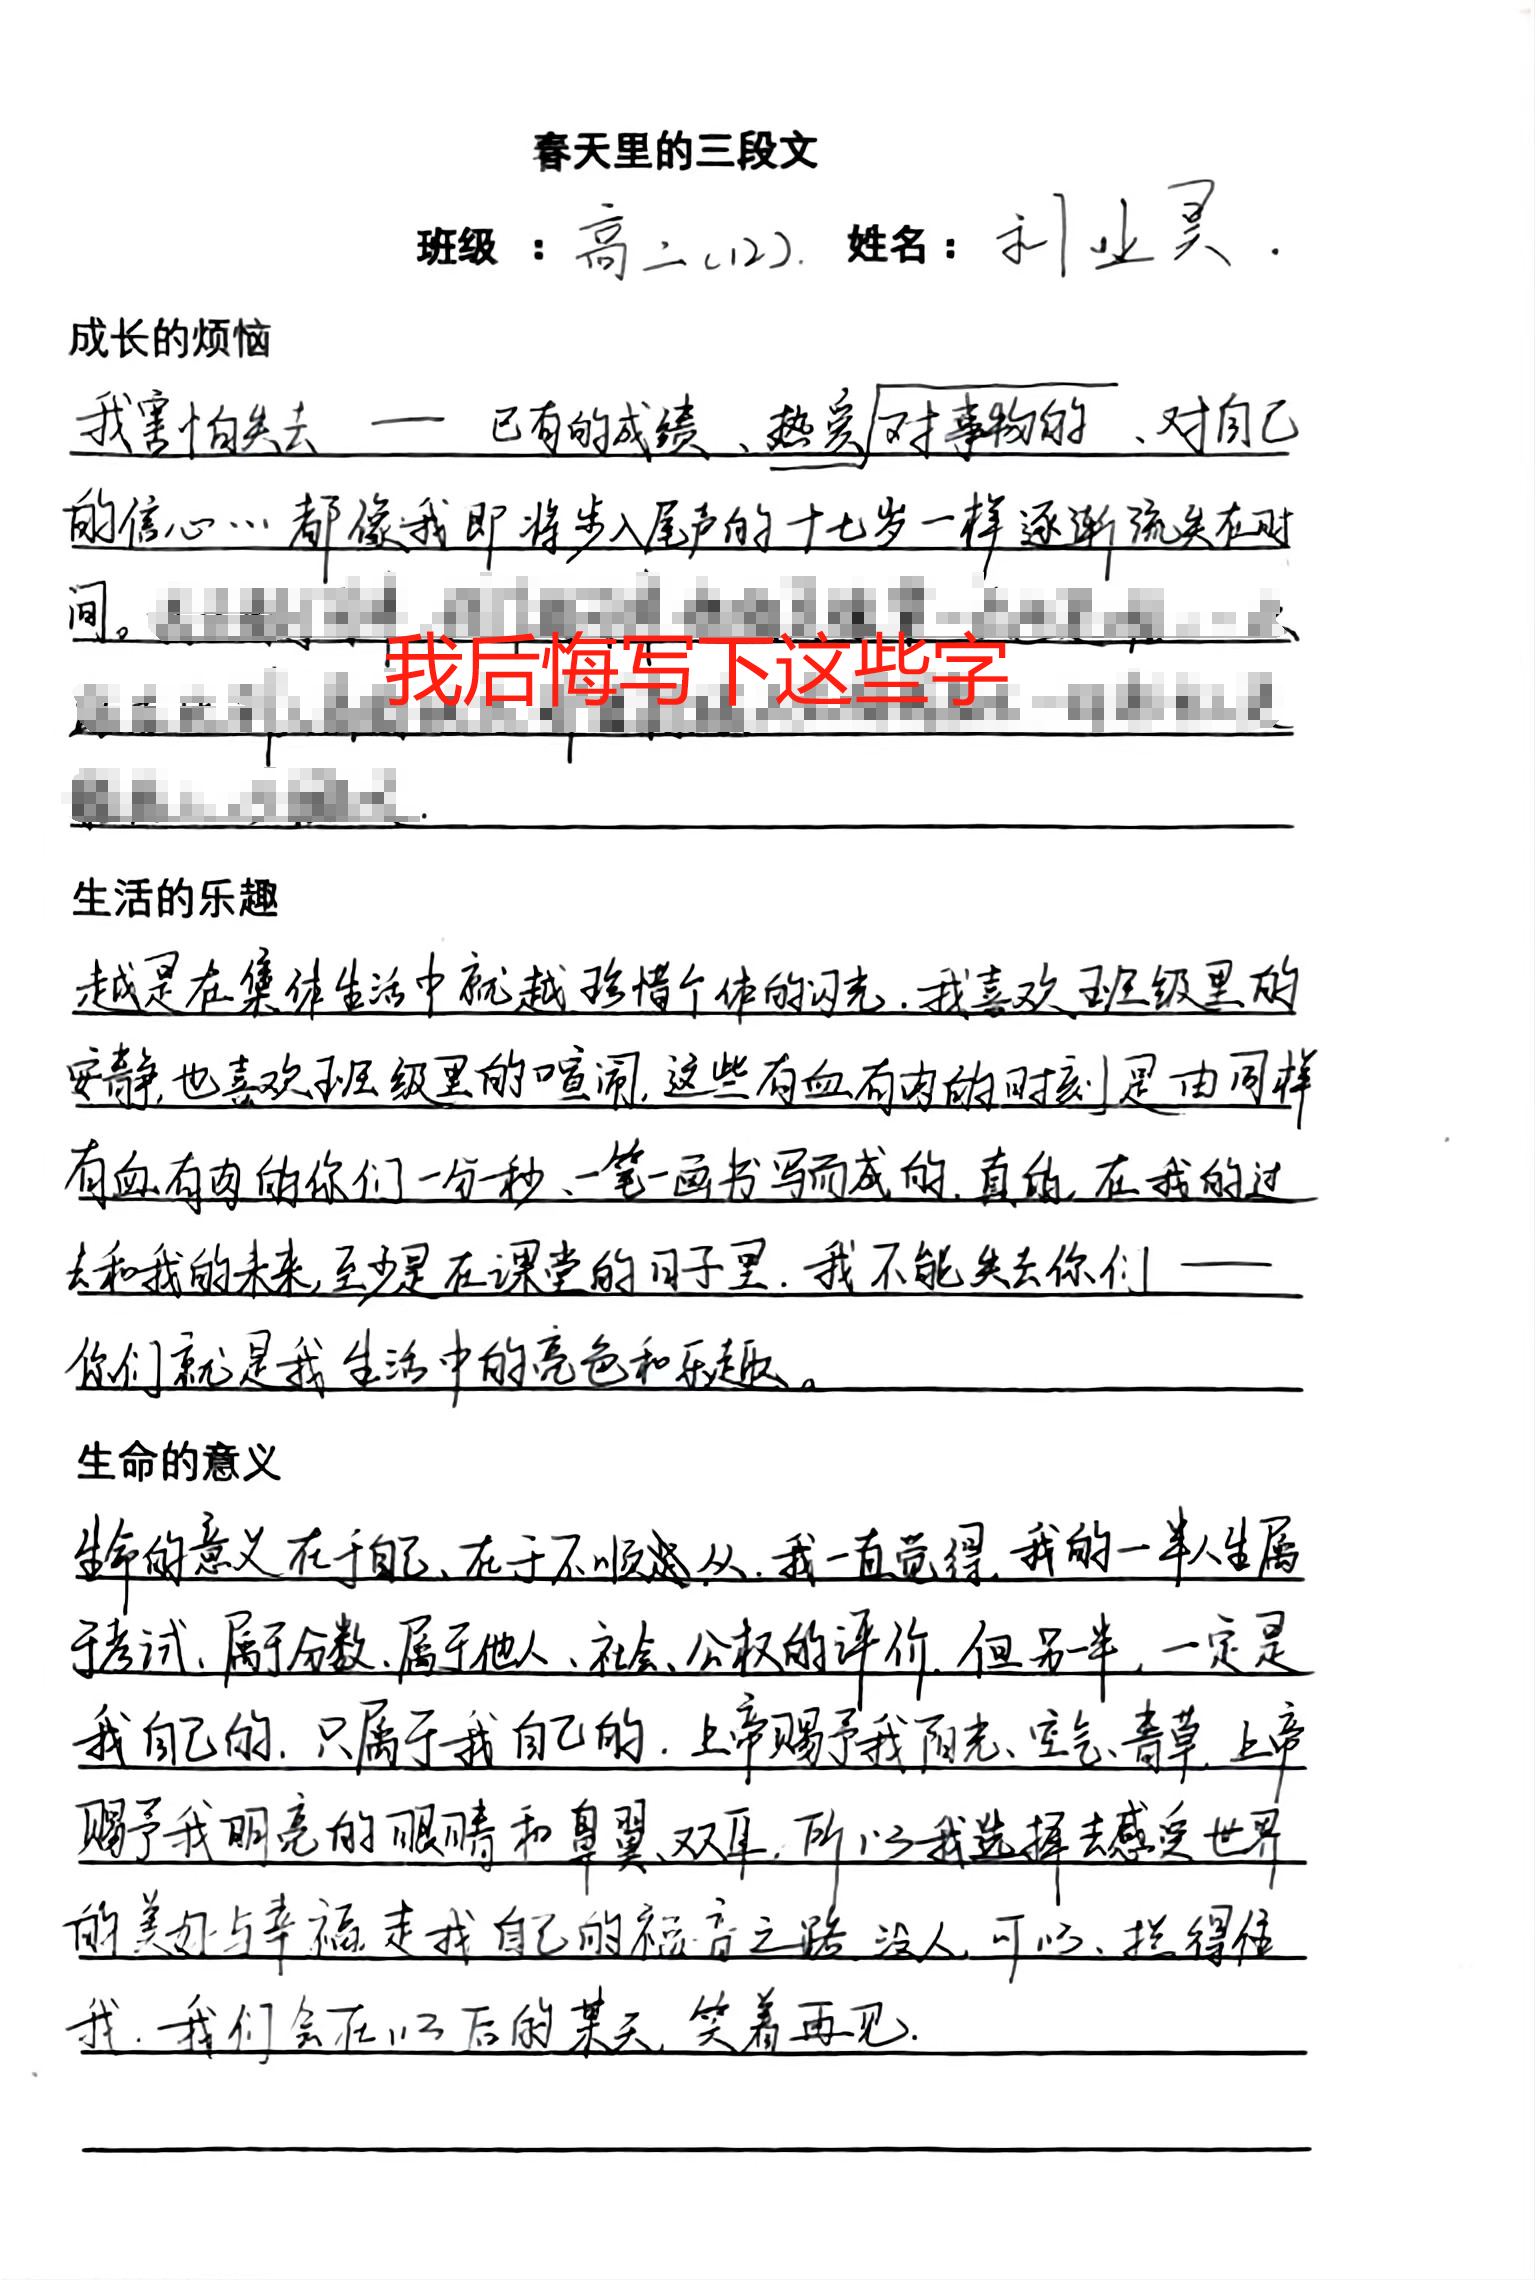 春天里的三段文
班级 : 高二(12). 姓名: 利业昊.
成长的烦恼
我害怕失去 —— 已有的成绩、热爱对事物的、对自己
的信心… 都像我即将步入尾声的十七岁一样逐渐流失在时
间。
我后悔写下这些字
生活的乐趣
越是在集体生活中就越珍惜个体的闪光. 我喜欢班级里的
安静, 也喜欢班级里的喧闹, 这些有血有肉的时刻是由同样
有血有肉的你们一分一秒、一笔一画书写而成的. 真的, 在我的过
去和我的未来, 至少是在课堂的日子里. 我不能失去你们 ——
你们就是我生活中的亮色和乐趣。
生命的意义
生命的意义在于自己、在于不顺从. 我一直觉得, 我的一半人生属
于考试、属于分数、属于他人、社会、公权的评价. 但另一半, 一定是
我自己的. 只属于我自己的. 上帝赐予我阳光、空气、青草, 上帝
赐予我明亮的眼睛和鼻翼、双耳. 所以我选择去感受世界
的美好与幸福 走我自己的福音之路 没人, 可以、拦得住
我. 我们会在以后的某天, 笑着再见.